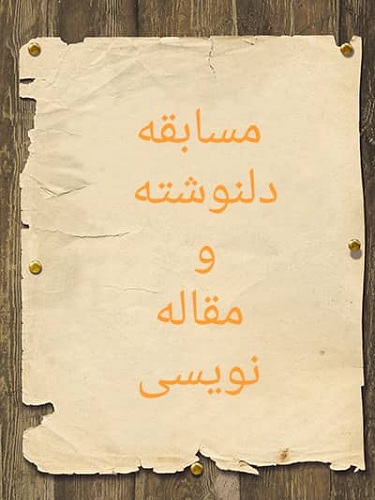 مسابقه
دلنوشته
و
مقاله
نویسی